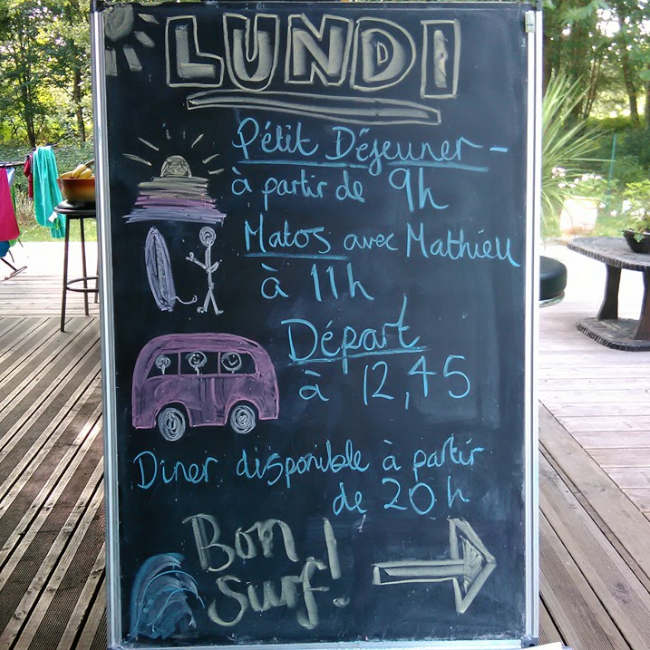 LUNDI
Pétit Déjeuner -
à partir de 9h
Matos avec Mathieu
à 11h
Départ
à 12,45
Diner disponible à partir
de 20h
Bon
Surf!